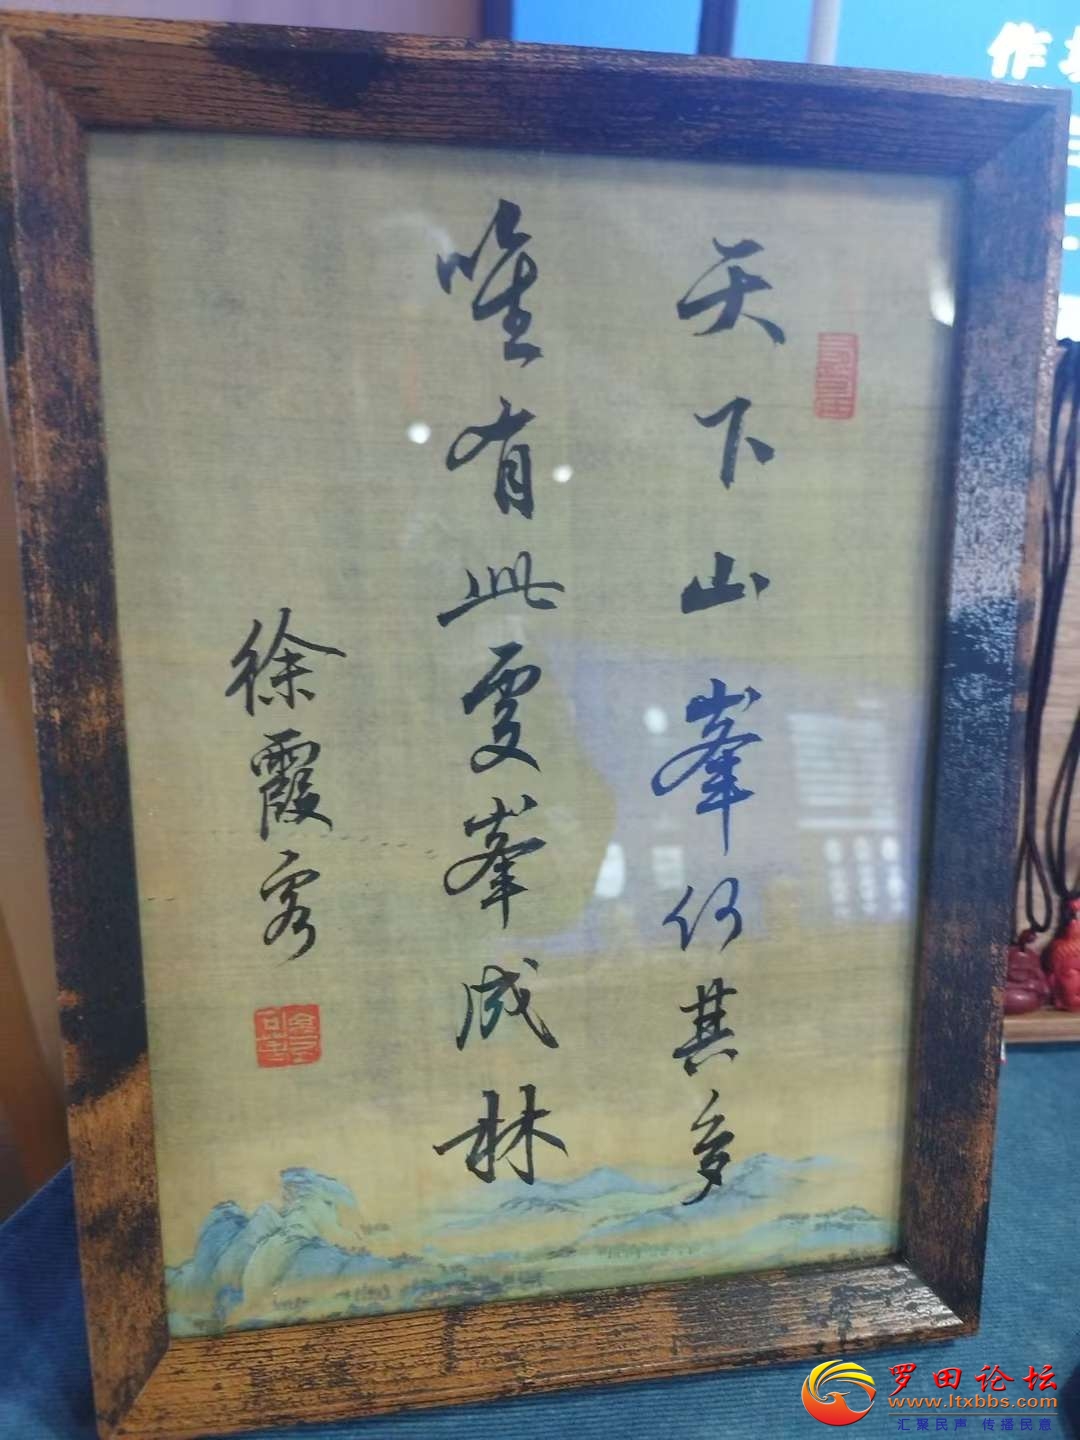 天下山峯何其多
唯有此處峯成林
徐霞客
作
罗田论坛
www.ltxbbs.com
汇聚民声 传播民意